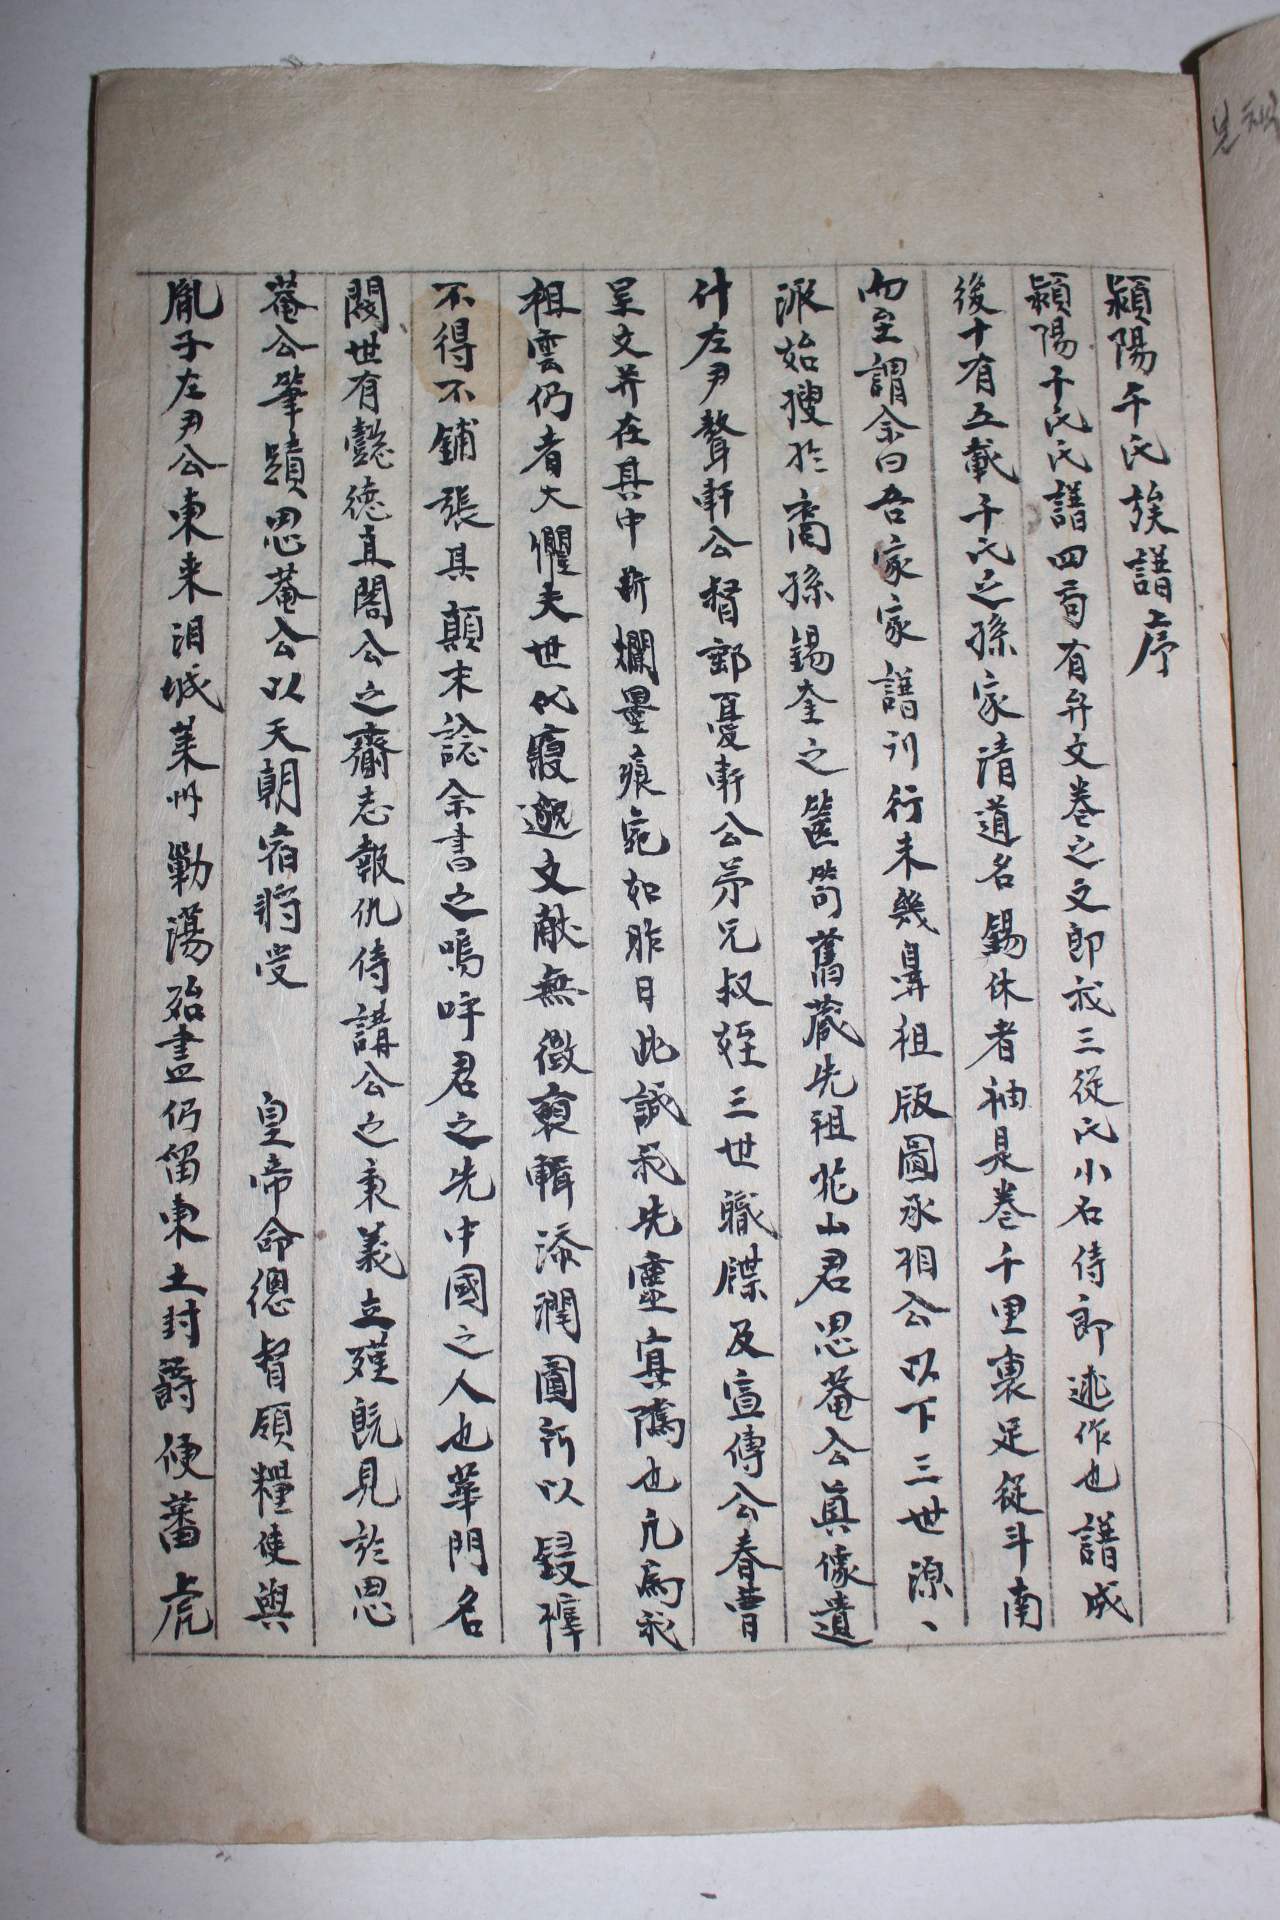 潁陽千氏族譜序
潁陽千氏氏譜四局有弁文卷之文即我三從氏小石侍郎述作也譜成
後十有五載千氏之孫家清道名錫休者袖是卷千里裹足從斗南
而至謂余曰吾家家譜刊行未幾鼻祖版圖承相公以下三世源、
派始搜於裔孫錫奎之篋笥舊藏先祖花山君思菴公眞像遺
什左尹聱軒公督郵憂軒公弟兄叔姪三世職牒及宣傳公春曹
呈文并在其中斬爛墨痕宛如昨日此誠我先靈冥隲也凡爲我
祖雲仍者大懼夫世代寢邈文献無徵裒輯添潤圖所以鋟榟
不得不鋪張其顛末諗余書之嗚呼君之先中國之人也華門名
閥世有懿德直閣公之齎志報仇侍講公之秉義立殣旣見於思
菴公筆蹟思菴公以天朝宿將受 皇帝命總督領糧使與
胤子左尹公東来泪城萊州勦蕩殆盡仍留東土封爵便蕃虎